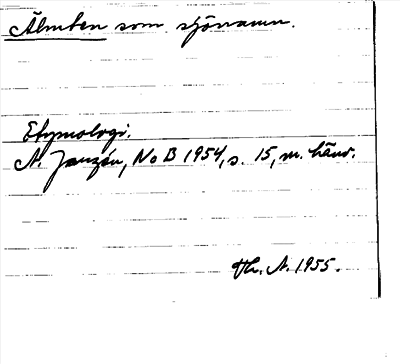 Älmten som sjönamn.
Etymologi.
A. Janzén, NoB 1954, s. 15, m. hänv.
Th. A. 1955.